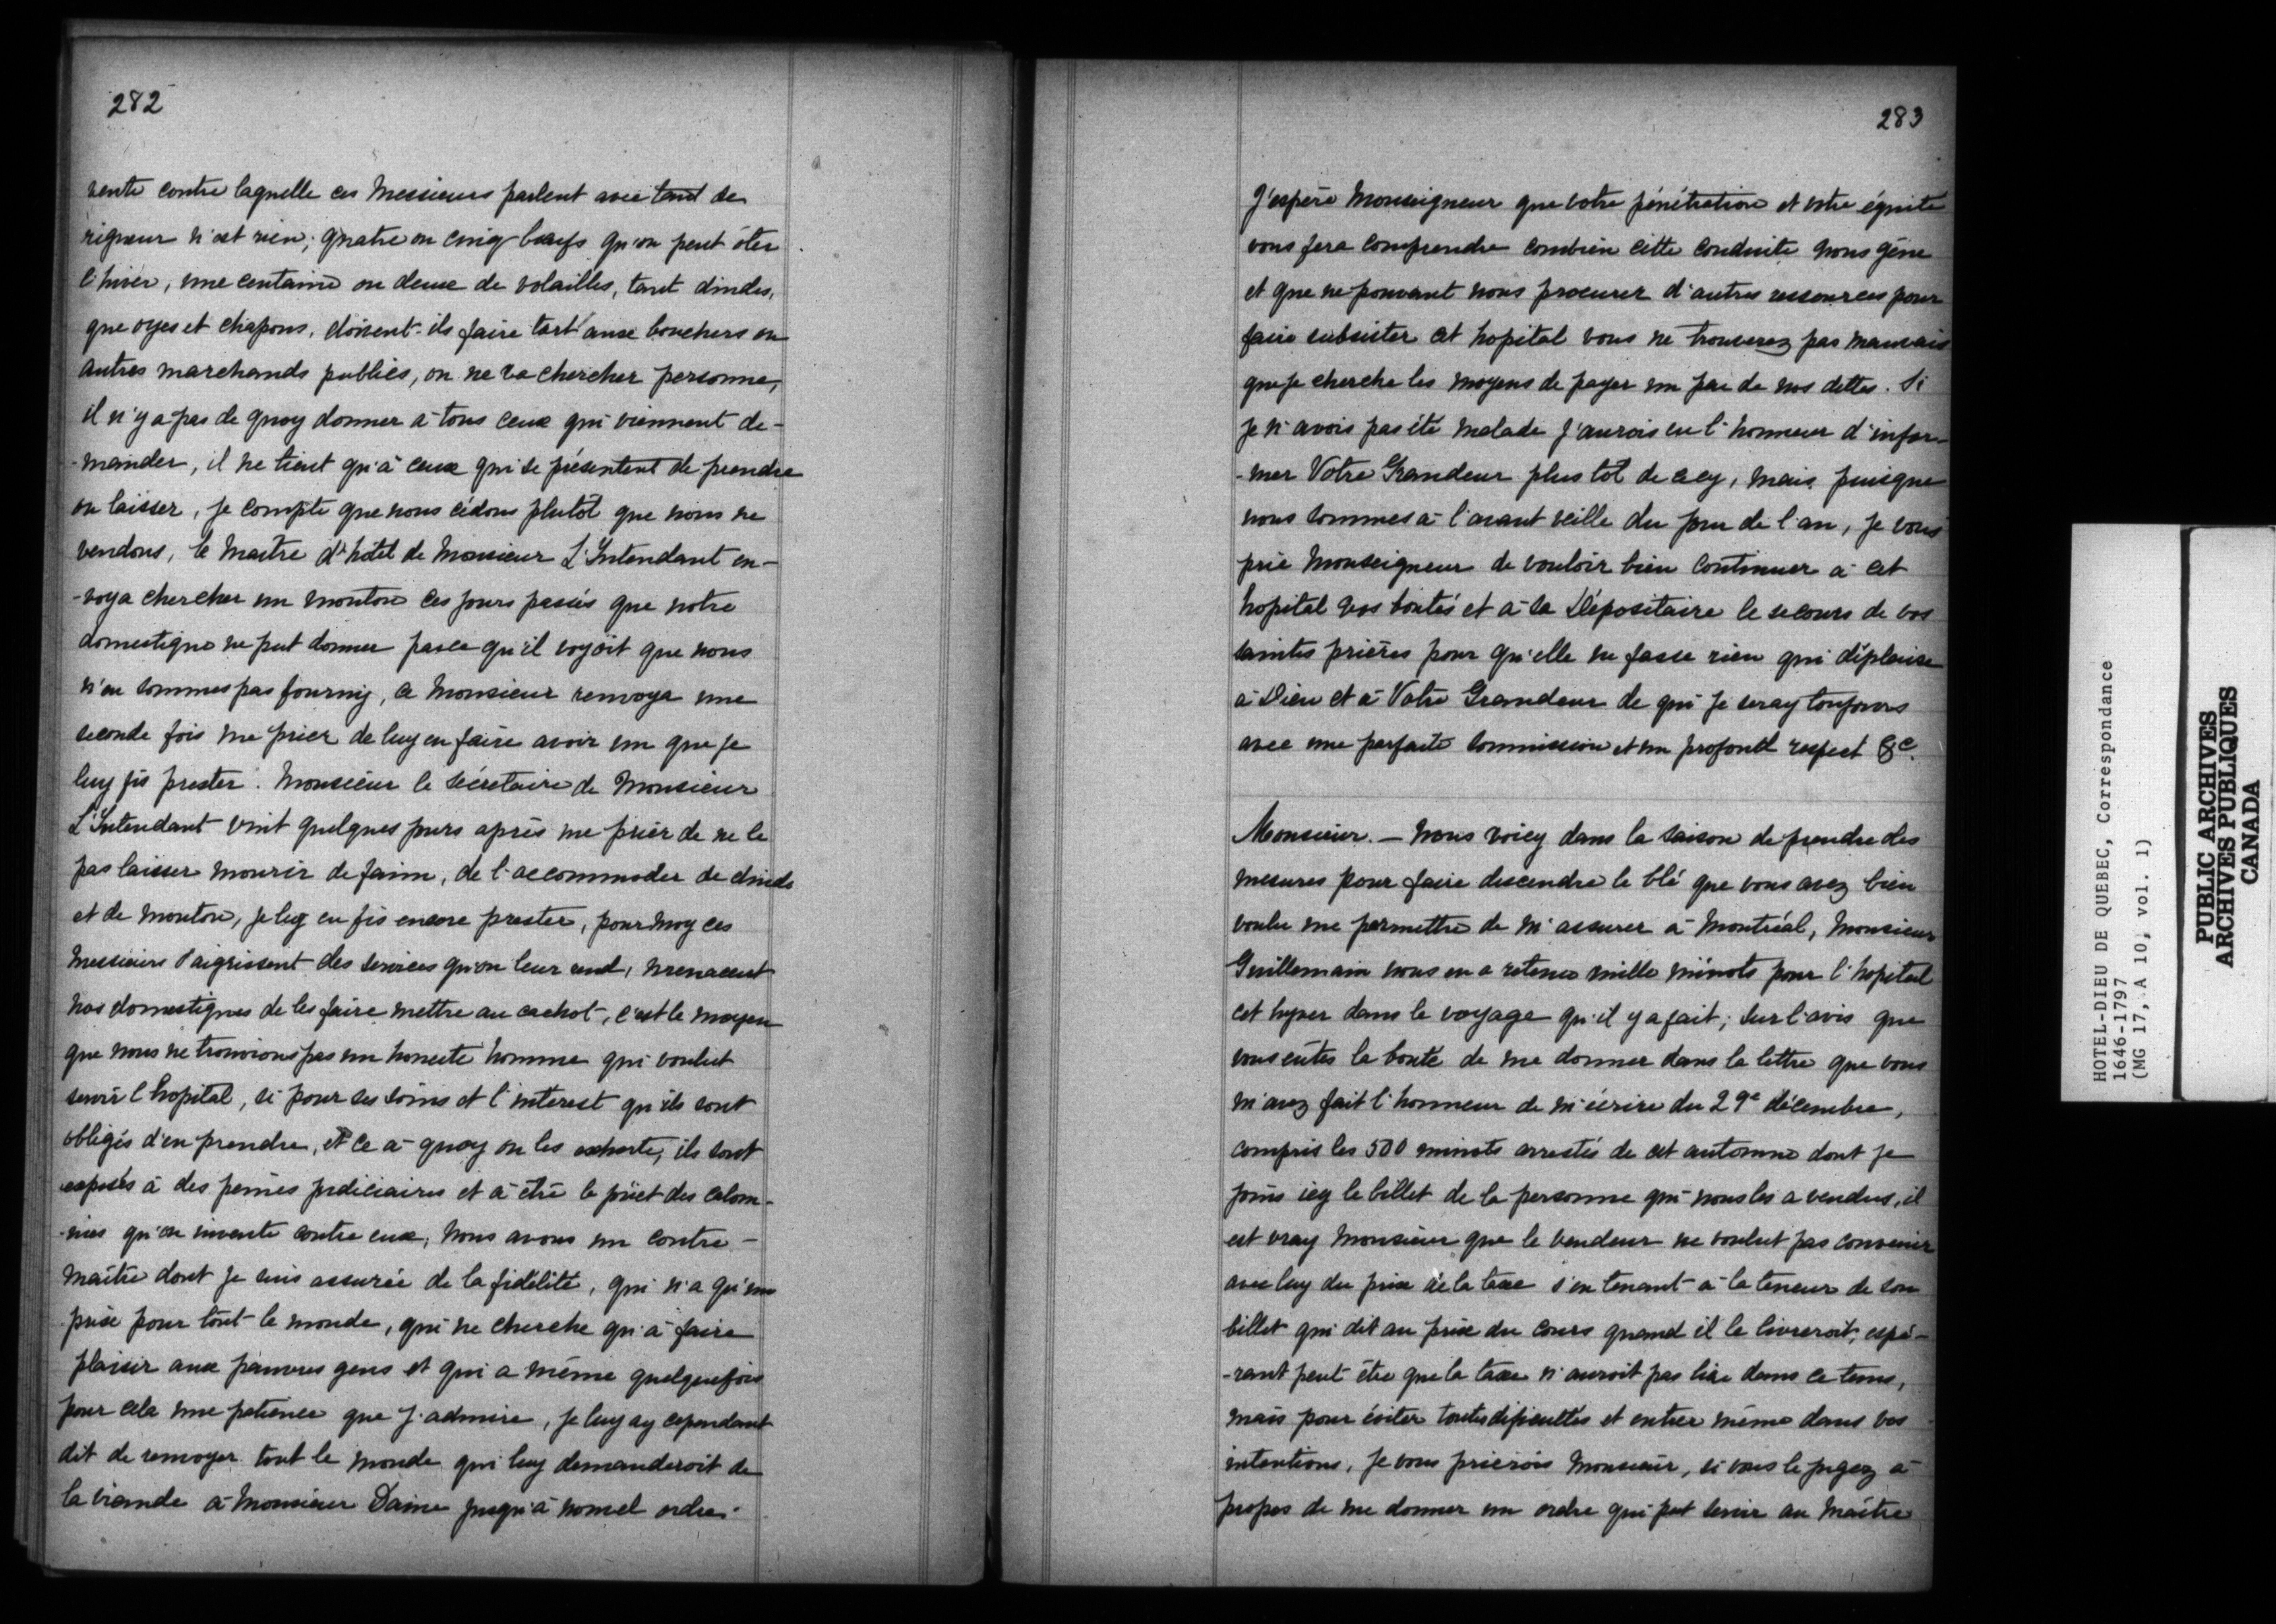 282
vente contre laquelle ces Messieurs parlent avec tant de
rigueur n'est rien; quatre ou cinq bœufs qu'on peut ôter
l'hiver, une centaine ou deux de volailles, tant dindes,
que oyes et chapons, doivent-ils faire tort aux bouchers ou
autres marchands publics, on ne va chercher personne,
il n'y a pas de quoy donner à tous ceux qui viennent de-
-mander, il ne tient qu'à ceux qui se présentent de prendre
ou laisser, je compte que nous cédons plutôt que nous ne
vendons, le maitre d'hôtel de Monsieur L'Intendant en-
-voya chercher un mouton ces jours passés que notre
domestique ne put donner parce qu'il voyoit que nous
n'en sommes pas fournis, ce Monsieur renvoya une
seconde fois me prier de luy en faire avoir un que je
luy fis prester. Monsieur le Sécretaire de Monsieur
L'Intendant vint quelques jours après me prier de ne le
pas laisser mourir de faim, de l'accommoder de dinds
et de mouton, je luy en fis encore prester, pour moy ces
Messieurs s'aigrissent des services qu'on leur rend, menacent
nos domestiques de les faire mettre au cachot, c'est le moyen
que nous ne trouvions pas un honeste homme qui voulut
servir l'hopital, si pour ses soins et l'interest qu'ils sont
obligés d'en prendre, et ce à quoy on les exhorte, ils sont
exposés à des peines judiciaires et à être le jouet des calom-
-nies qu'on invente contre eux, nous avons un contre-
maître dont je suis assurée de la fidélité, qui n'a qu'un
prix pour tout le monde, qui ne cherche qu'à faire
plaisir aux pauvres gens et qui a même quelquefois
pour cela une patience que j'admire, je luy ay cependant
dit de renvoyer tout le monde qui luy demanderoit de
la viande à Monsieur Daine jusqu'à nouvel ordre.
283
J'espère Monseigneur que votre pénétration et votre équité
vous fera comprendre combien cette conduite nous gêne
et que ne pouvant nous procurer d'autres ressources pour
faire subsister cet hopital vous ne trouverez pas mauvais
que je cherche les moyens de payer un peu de nos dettes. Si
je n'avois pas été malade j'aurois eu l'honneur d'infor-
-mer Votre Grandeur plus tôt de cecy, mais puisque
nous sommes à l'avant veille du jour de l'an, je vous
prie Monseigneur de vouloir bien continuer à cet
hopital vos bontés et à la Dépositaire le secours de vos
saintes prières pour qu'elle ne fasse rien qui déplaise
à Dieu et à Votre Grandeur de qui je seray toujours
avec une parfaite soumission et un profond respect &c.
Monsieur. — Nous voicy dans la saison de prendre des
mesures pour faire descendre le blé que vous avez bien
voulu me permettre de m'assurer à Montréal, Monsieur
Guillemain nous en a retenu mille minots pour l'hopital
cet hyver dans le voyage qu'il y a fait; sur l'avis que
vous eûtes la bonté de me donner dans la lettre que vous
m'avez fait l'honneur de m'écrire du 29e décembre,
compris les 500 minots arrestés de cet automne dont je
joins icy le billet de la personne qui nous les a vendus, il
est vray Monsieur que le vendeur ne voulut pas convenir
avec luy du prix de la taxe s'en tenant à la teneur de son
billet qui dit au prix du cours quand il le livreroit, espé-
-rant peut être que la taxe n'auroit pas lieu dans ce tems,
mais pour éviter toutes dificultés et entrer même dans vos
intentions, je vous prierois Monsieur, si vous le jugez à
propos de me donner un ordre qui put servir au maître
HOTEL-DIEU DE QUEBEC, Correspondance
1646-1797
(MG 17, A 10, vol. 1)
PUBLIC ARCHIVES
ARCHIVES PUBLIQUES
CANADA